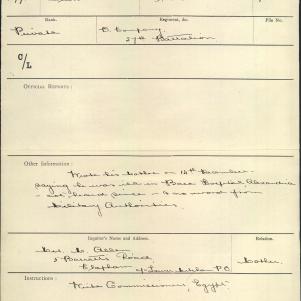 Rank.
Regiment, &c.
File No.
Private
D. Company
27th Battalion
C/L
OFFICIAL REPORTS :
Other Information :
Wrote his mother on 14th December
saying he was ill in Base Hospital Alexandria
- not heard since - & no word from
Military Authorities.
Inquirer's Name and Address.
Relation.
Mrs. Allen
5 Barretts Road,
Clapham
P.O
Mother.
Instructions :
Write Commissioner, Egypt.